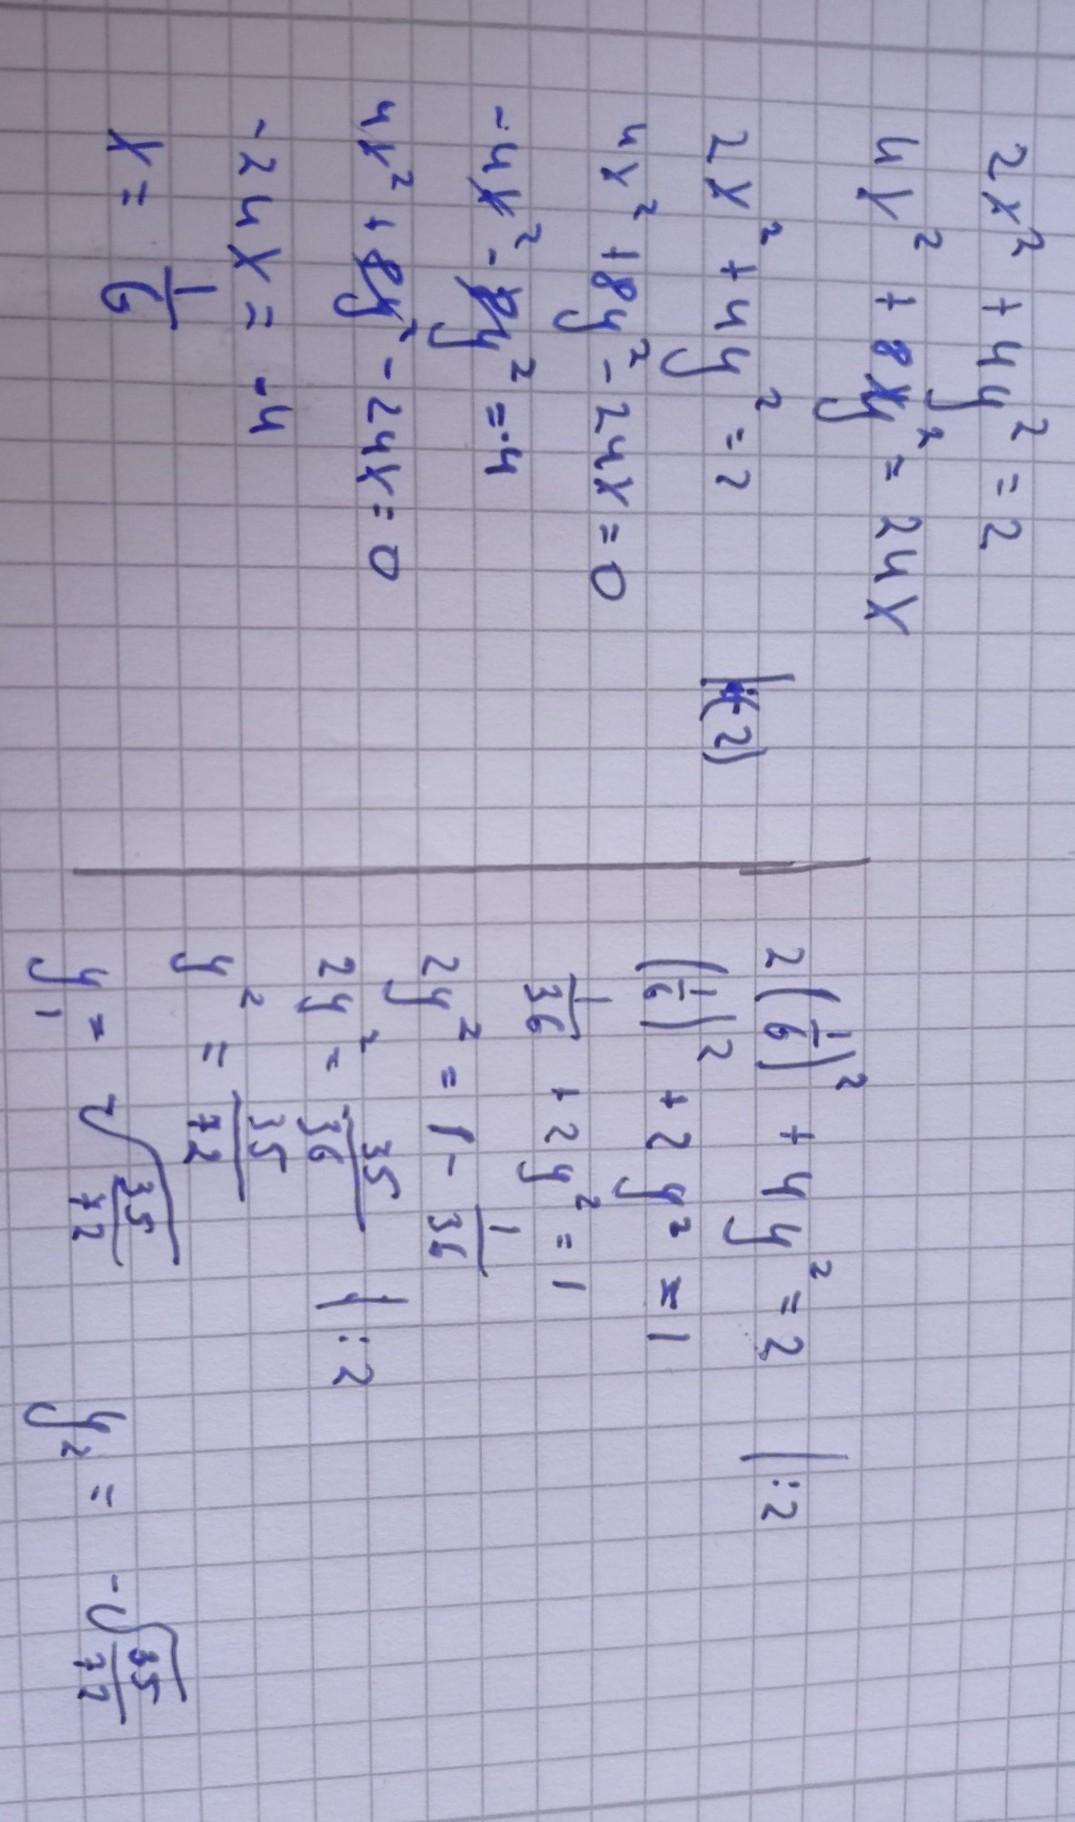 2x² + 4y² = 2
4x² + 8y² = 24x
2x² + 4y² = 2 |·(-2)
4x² + 8y² - 24x = 0
-4x² - 8y² = -4
4x² + 8y² - 24x = 0
-24x = -4
x = 1/6
2(1/6)² + 4y² = 2 |:2
(1/6)² + 2y² = 1
1/36 + 2y² = 1
2y² = 1 - 1/36
2y² = 35/36 |:2
y² = 35/72
y₁ = √(35/72) y₂ = -√(35/72)